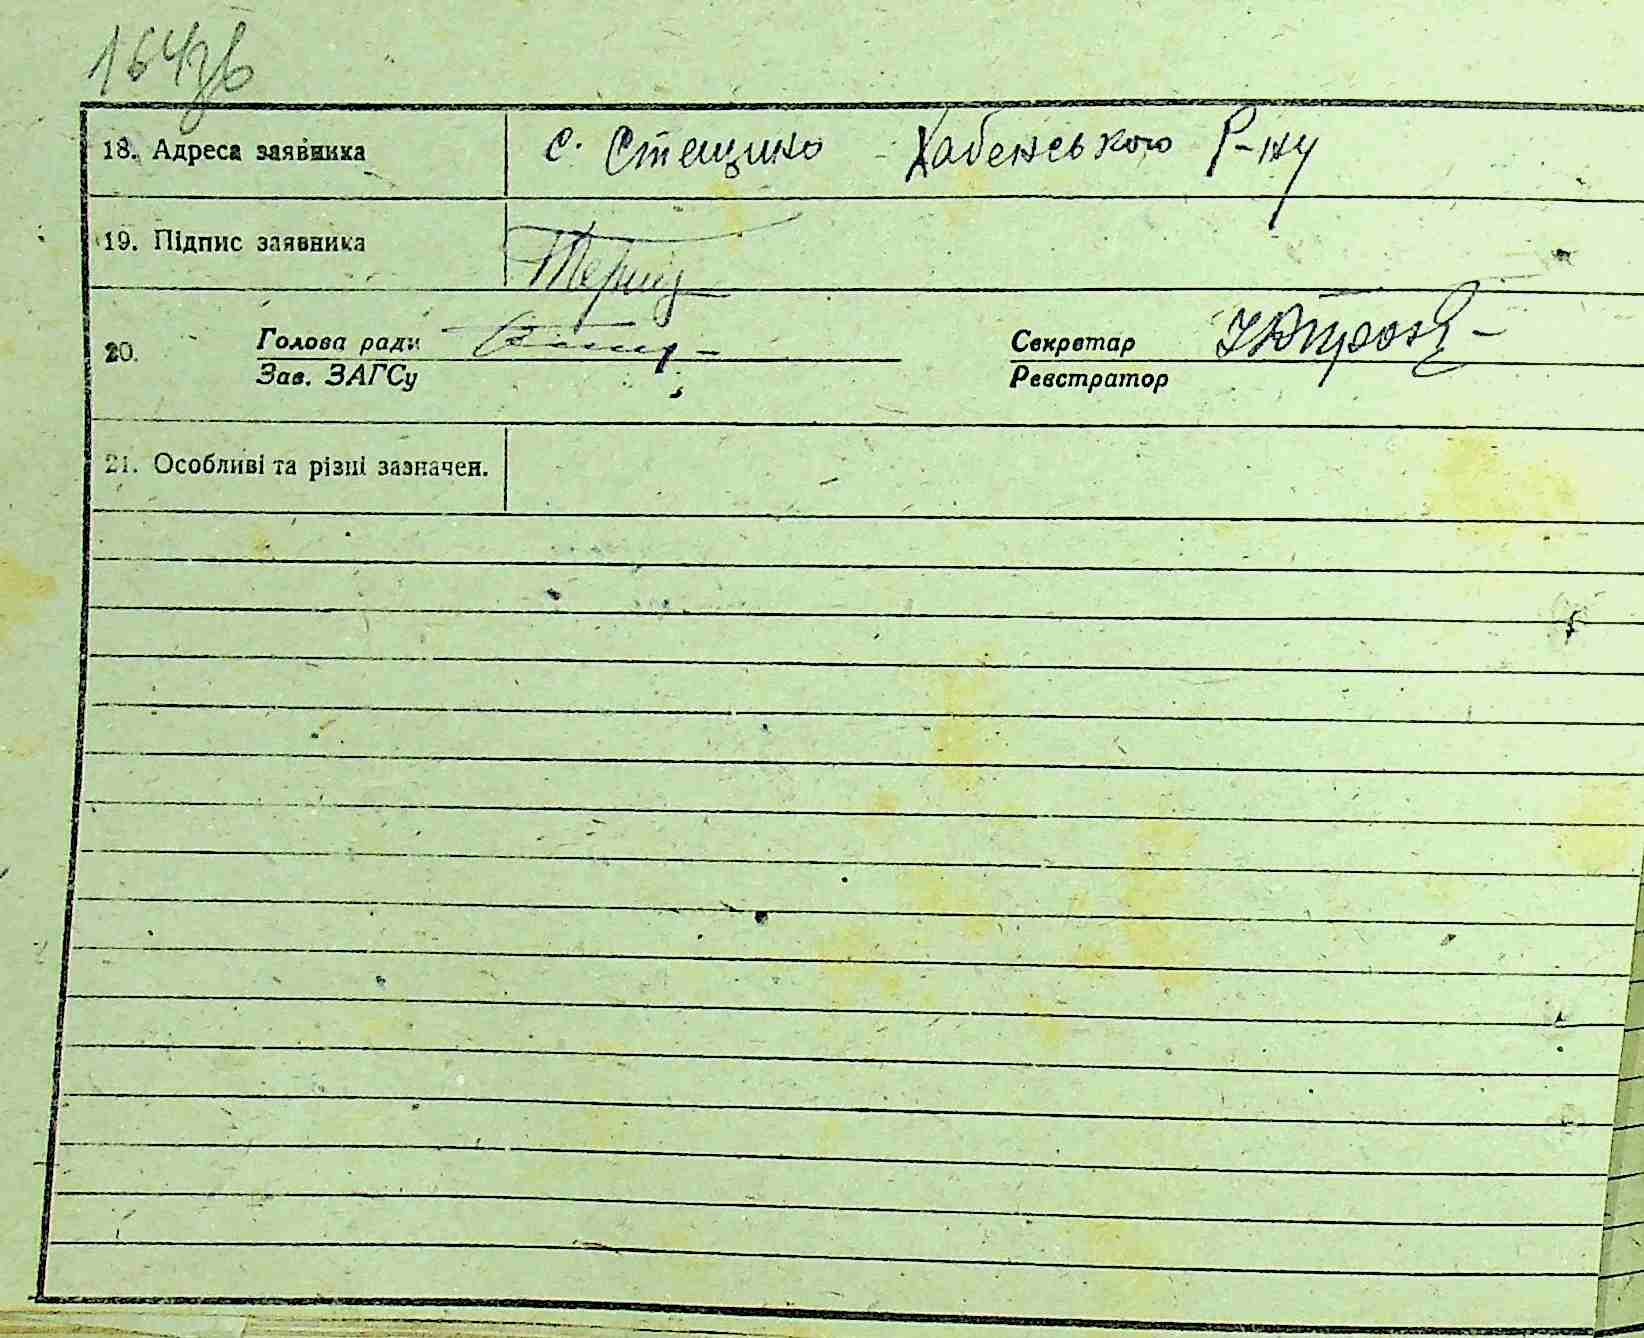 164зв
18. Адреса заявника с. Стещино Хабенського Р-ну
19. Підпис заявника
20. Голова ради Секретар
Зав. ЗАГСу Реєстратор
21. Особливі та різні зазначен.